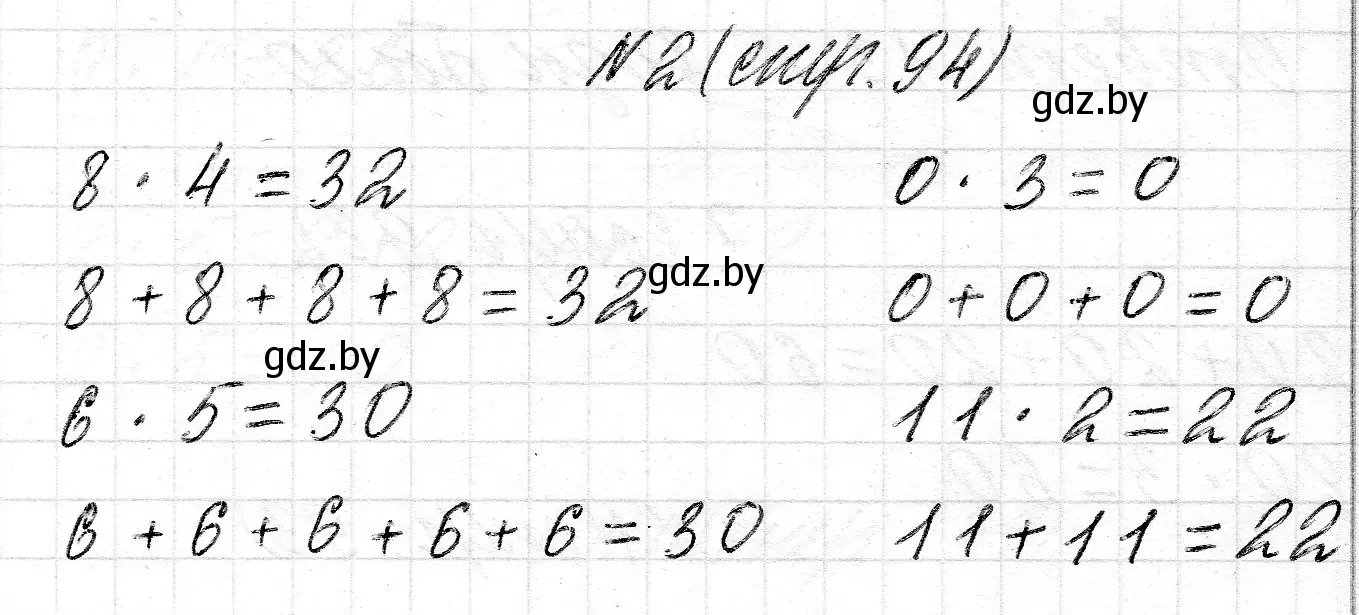 №2 (стр. 94)
gdz.by
8 · 4 = 32
0 · 3 = 0
8 + 8 + 8 + 8 = 32
gdz.by
0 + 0 + 0 = 0
gdz.by
6 · 5 = 30
11 · 2 = 22
6 + 6 + 6 + 6 + 6 = 30
11 + 11 = 22